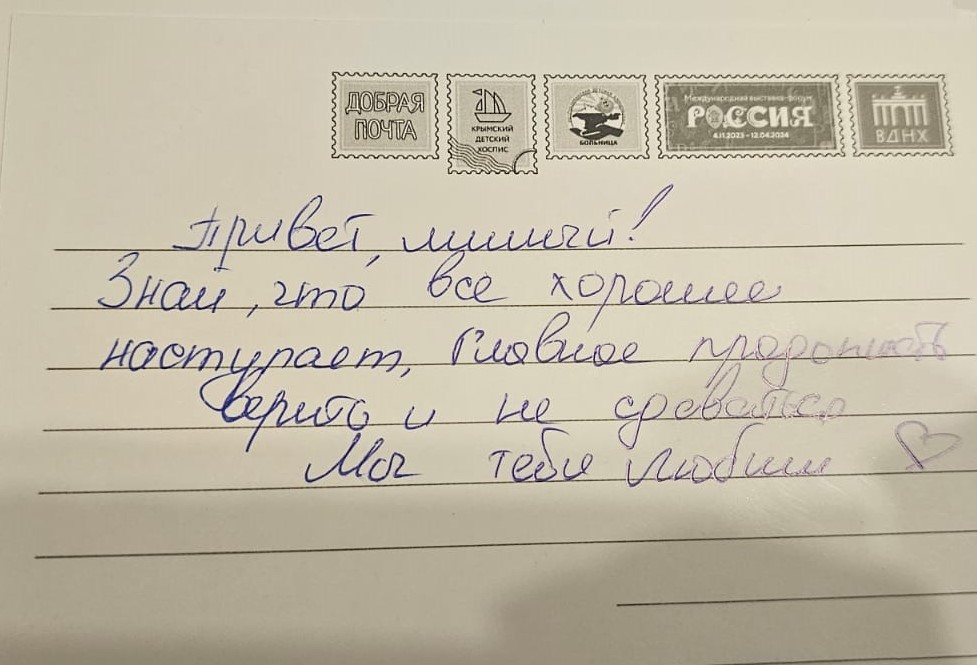 ДОБРАЯ
ПОЧТА
КРЫМСКИЙ
ДЕТСКИЙ
ХОСПИС
БОЛЬНИЦА
Международная выставка-форум
РОССИЯ
4.11.2023 - 12.04.2024
ВДНХ
Привет, милый!
Знай, что все хорошее
наступает, Главное продолжать
верить и не сдаваться
Мы тебя любим